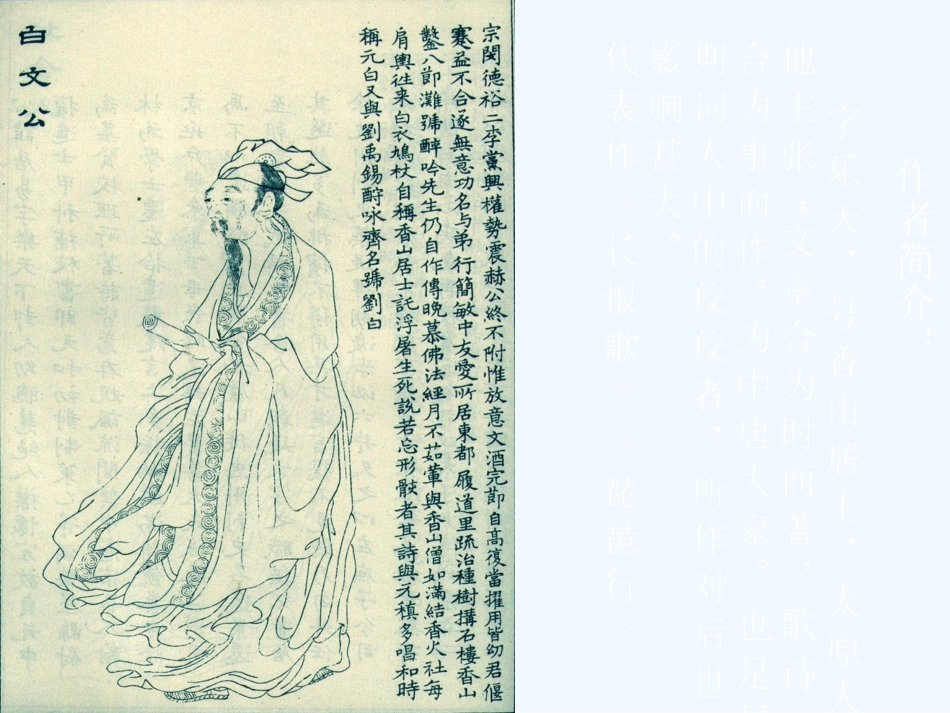 作者简介:
字乐天,号香山居士,太原人
他主张“文章合为时而著,歌诗
合为事而作”。为中唐大家。也是
期词人中的佼佼者,所作对后世
影响甚大。
代表作《长恨歌》、《琵琶行》
宗閔德裕二李黨興權勢震赫公終不附惟放意文酒完節自高復當擢用皆幼君偃
蹇益不合逐無意功名与弟行簡敏中友愛所居東都履道里疏治種樹搆石樓香山
鑿八節灘號醉吟先生仍自作傳晚慕佛法經月不茹葷與香山僧如滿結香火社每
肩輿往来白衣鳩杖自稱香山居士託浮屠生死說若忘形骸者其詩與元稹多唱和時
稱元白又與劉禹錫酹咏齊名號劉白
白文公